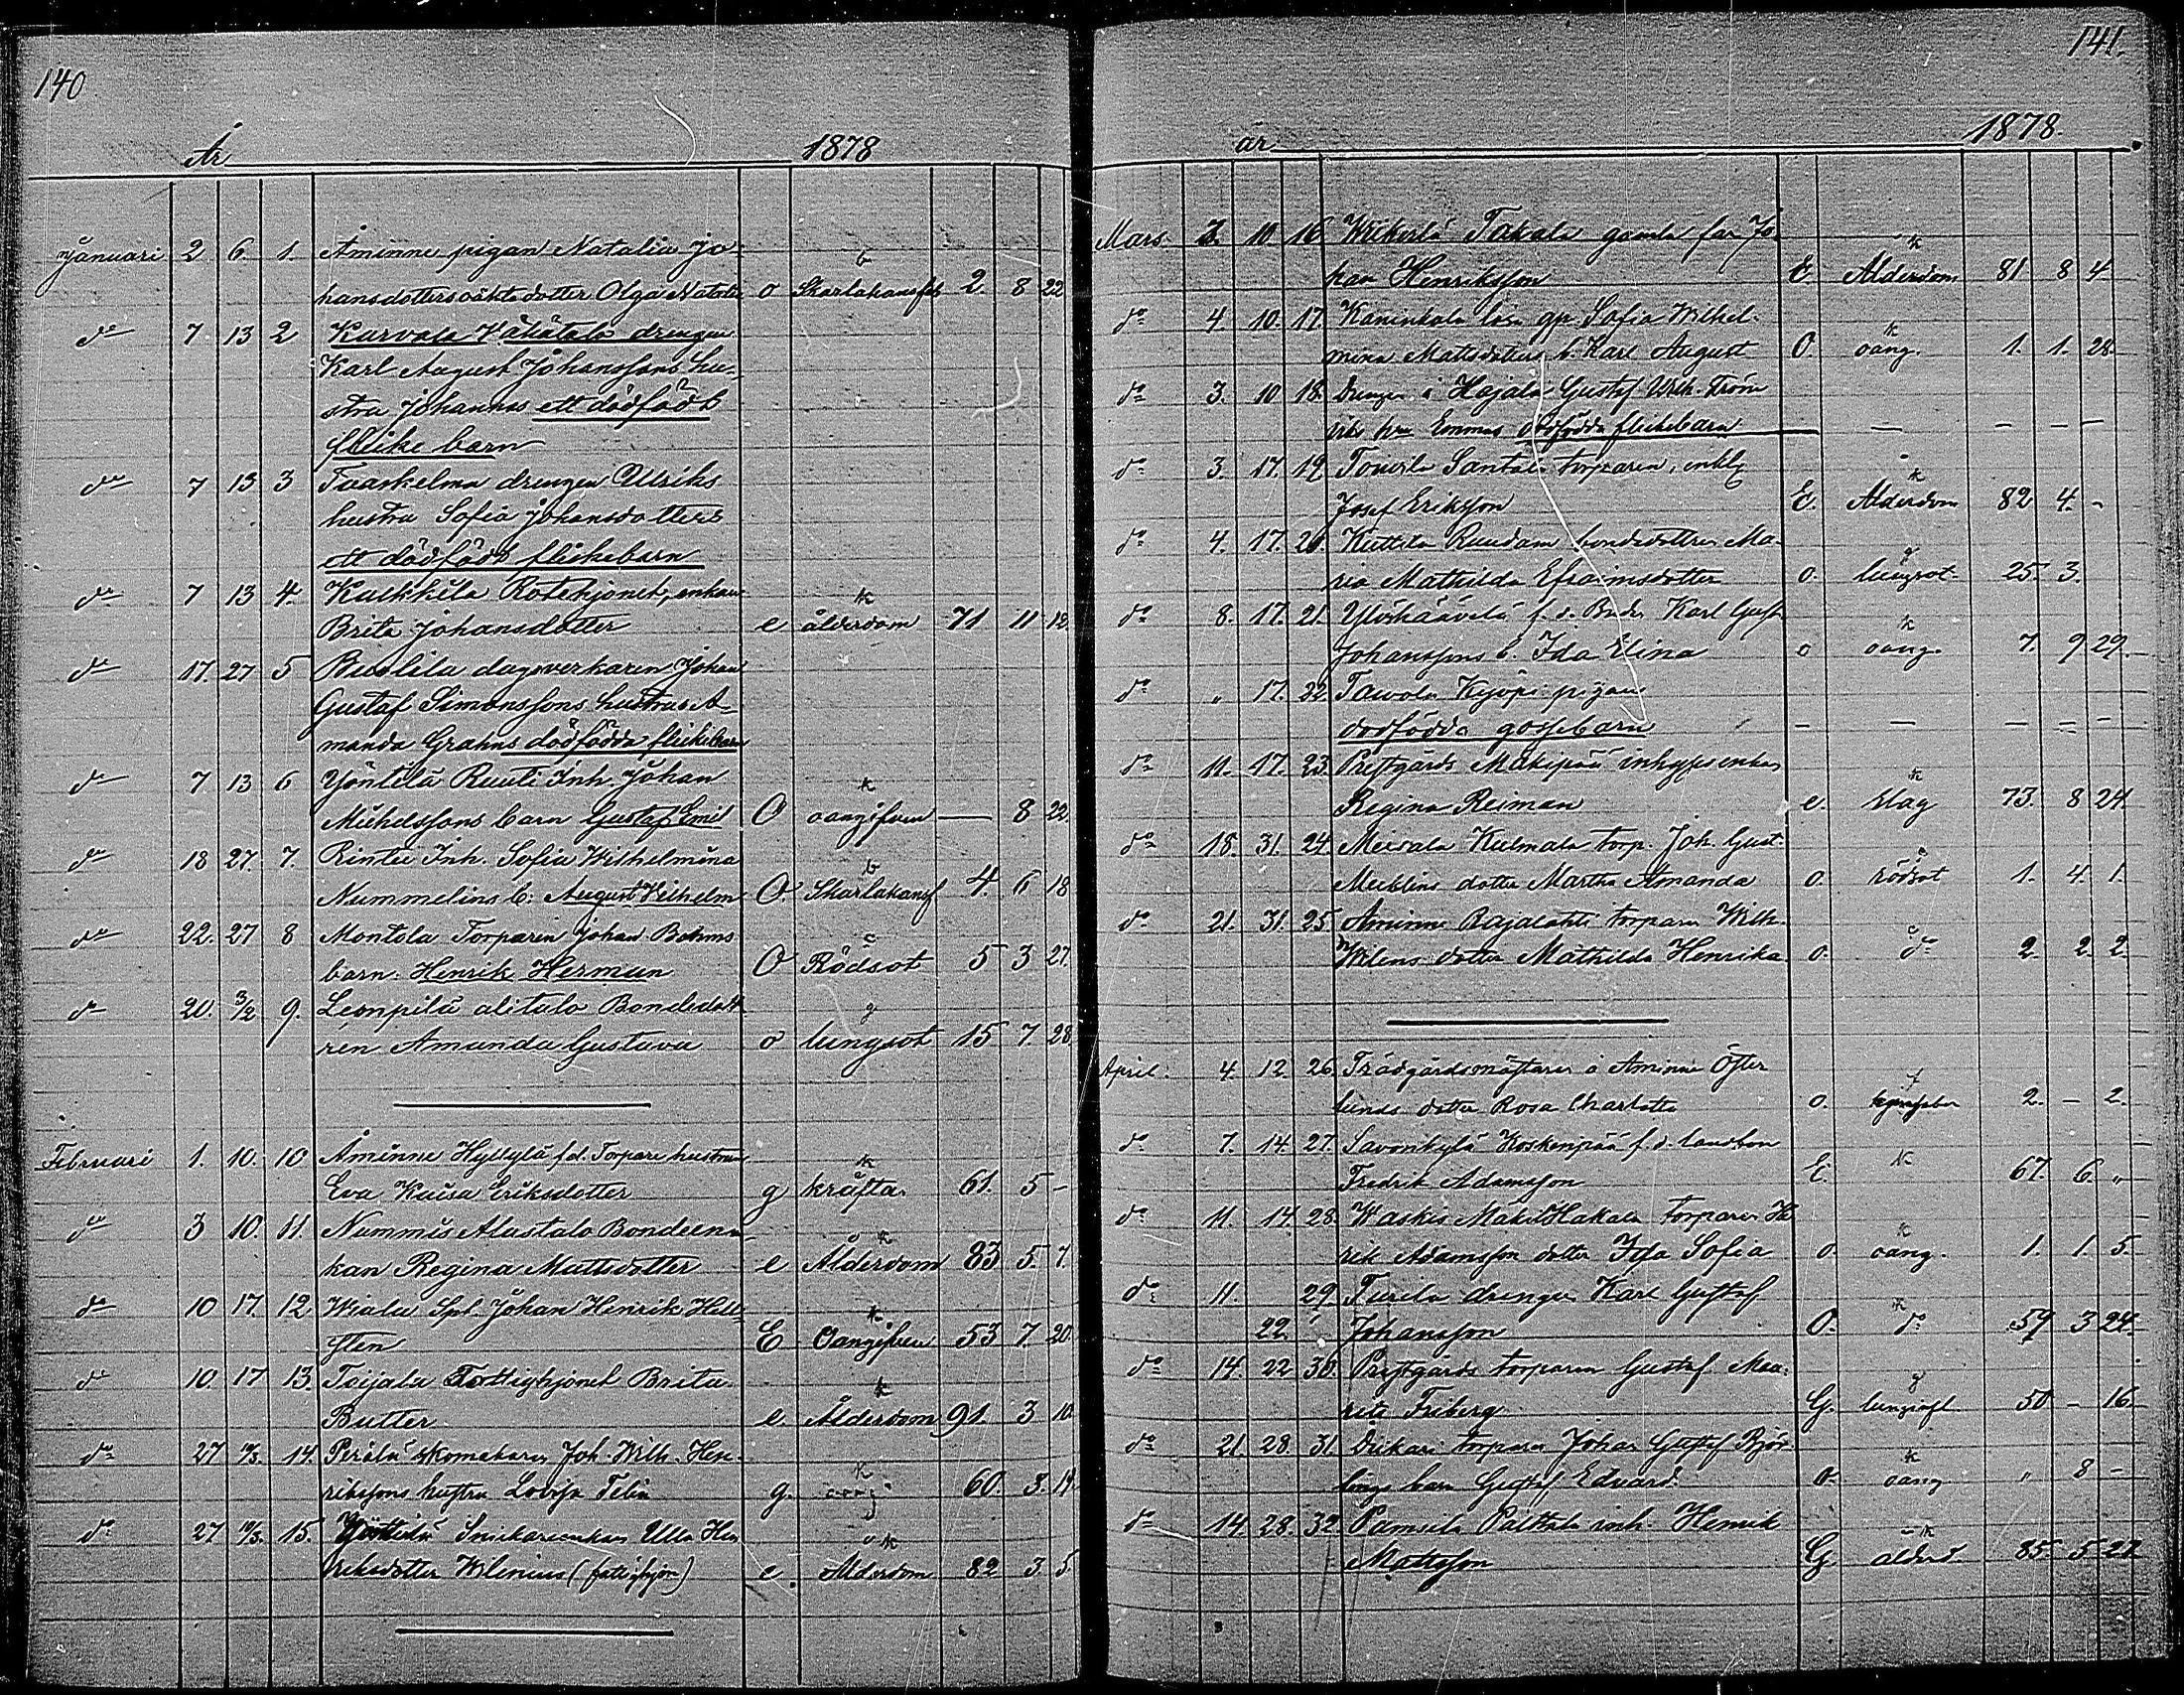 140
År 1878
Januari 2 6 1 Åminne pigan Natalia Jo-
hansdotters oäkta dotter Olga Natalia o Skarlakansfeb b 2 8 22
do 7 13 2 Karvala Vähätalo drengen
Karl August Johanssons hu-
stru Johannas ett dödfödt
flickebarn
do 7 13 3 Toaskelma drengen Ullriks
hustru Sofia Johansdotters
ett dödfödt flickebarn
do 7 13 4. Kaekkela Rotehjonet, enkan
Brita Johansdotter e ålderdom k 71 11 12
do 17. 27 5 dagsverkaren Johan
Gustaf Simonssons hustrus A-
manda Grahns dödfödda flickebarn
do 7 13 6 Yöntilä Ruuti Inh. Johan
Michelssons barn Gustaf Emil O oangifven k — 8 22
do 18 27. 7. Rintee Inh. Sofia Wilhelmina
Nummelins b: August Vilhelm O. Skarlakansf b 4. 6 18
do 22. 27 8 Montola Torparen Johan Bohms
barn. Henrik Herman O Rödsot c 5 3 27.
do 20. 3/2 9. Leonpilä alitalo Bondedott-
ren Amanda Gustava o lungsot g 15 7 28
Februari 1. 10. 10 Åminne Hyllylä f.d. Torpare hustrun
Eva Kaisa Eriksdotter g kräfta. k 61. 5 -
do 3 10. 11. Nummis Alustalo Bondeen-
kan Regina Mattsdotter e Ålderdom k 83 5. 7.
do 10 17. 12. Wiala Spl. Johan Henrik Hell-
sten E Oangifven k 53 7. 20.
do 10. 17 13. Toijala Fattighjonet Brita
Butter e. Ålderdom k 91. 3 10
do 27 10/3. 14. Perälä skomakaren Joh. Wilh. Hen-
rikssons hustru Lovisa Felin g. oang k 60. 3. 14
do 27 10/3. 15. Snickareenkan Ulla Hen
riksdotter Wilenius (fattighjon) e. Ålderdom k 82 3 5
141.
år 1878.
Mars. 3. 10 16 Takala gamla far Jo-
han Henriksson E. Ålderdom k 81 8 4.
do 4. 10. 17. Kaninkola lösa qp. Sofia Wilhel-
mina Mattsdotters b. Karl August O. oang. k 1. 1. 28
do 3. 10 18. Drengen i Hajala Gustaf Wilh. Ström
hu Emmas dödfödda flickebarn — — — — —
do 3. 17. 19. Toivila Santala torparen, enkl.
Josef Eriksson E. Ålderdom k 82. 4. -
do 4. 17. 20. Kuttila Ruudam bondedottren Ma-
ria Mathilda Efraimsdotter o. lungsot g 25. 3.
do 8. 17. 21. f.d. Bnde Karl Gust.
Johanssons b. Ida Elina o oang. k 7. 9 29.
do " 17. 22. Tavola Kyöpi pigans
dödfödda gossebarn — — — — —
do 11. 17. 23. Prestgårds Mäkipää inhysesenkan
Regina Reiman e. slag k 73. 8 24.
do 18. 31. 24. Meisala Kulmala torp. Joh. Gust.
Mecklins dotter Martha Amanda o. rödsot c 1. 4. 1.
do 21. 31. 25. Åminne Rajalahti torparen Wilh.
Wilens dotter Mathilda Henrika o. do c 2. 2. 2.
April. 4. 12. 26. Trädgårdsmästaren å Åminne Öster
lunds dotter Rosa Charlotta o. f 2. - 2.
do 7. 14. 27. Savonkylä Koskenpää f.d. landbon
Fredrik Adamsson E. k 67. 6. "
do 11. 14. 28. Waskis Mäkilhakala torparen He
rik Adamsson dotter Ida Sofia o. oang. k 1. 1. 5.
do 11. 29. Turila drengen Karl Gustaf
22. Johansson O. do k 59 3 24.
do 14. 22 30. Prestgårds torparen Gustaf Mau-
ritz Friberg G. lunginfl g 50 - 16.
do 21. 28. 31. Dukari torparen Johan Gustaf Björ-
lings barn Gustaf Edvard. o. oang k " 8 -
do 14. 28. 32. Pamsila Palttala inh. Henrik
Mattsson G ålderd. k 85. 5 27.